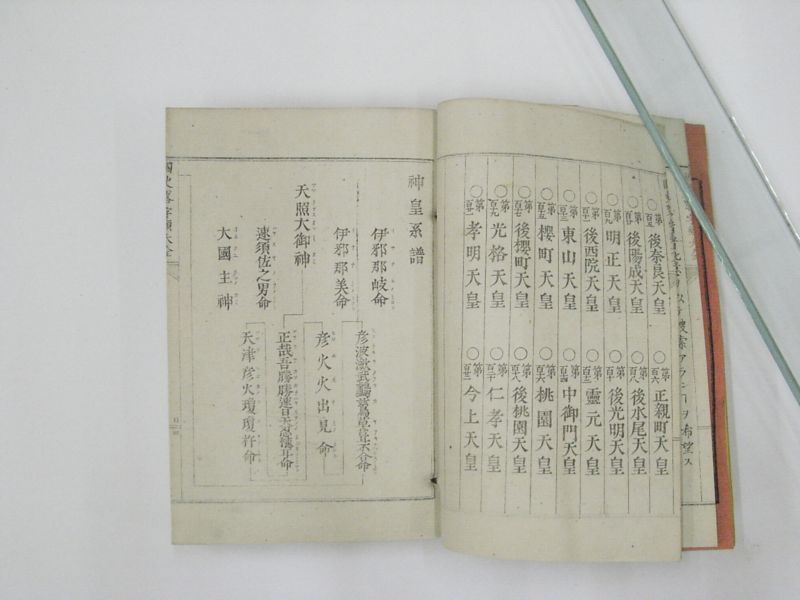 搜索アランコトヲ希望ス
○第百五 後奈良天皇 ○第百六 正親町天皇
○第百七 後陽成天皇 ○第百八 後水尾天皇
○第百九 明正天皇 ○第百十 後光明天皇
○第 後西院天皇 ○第 靈元天皇
○第 東山天皇 ○第 中御門天皇
○第 櫻町天皇 ○第 桃園天皇
○第 後櫻町天皇 ○第 後桃園天皇
○第 光格天皇 ○第 仁孝天皇
○第 孝明天皇 ○第 今上天皇
神皇系譜
伊邪那岐命
伊邪那美命
天照大御神
速須佐之男命
大國主神
正哉吾勝勝速日天忍穗耳命
天津彦火瓊瓊杵命
彦火火出見命
彦波瀲武鸕鷀草葺不合命
國史畧字類大全